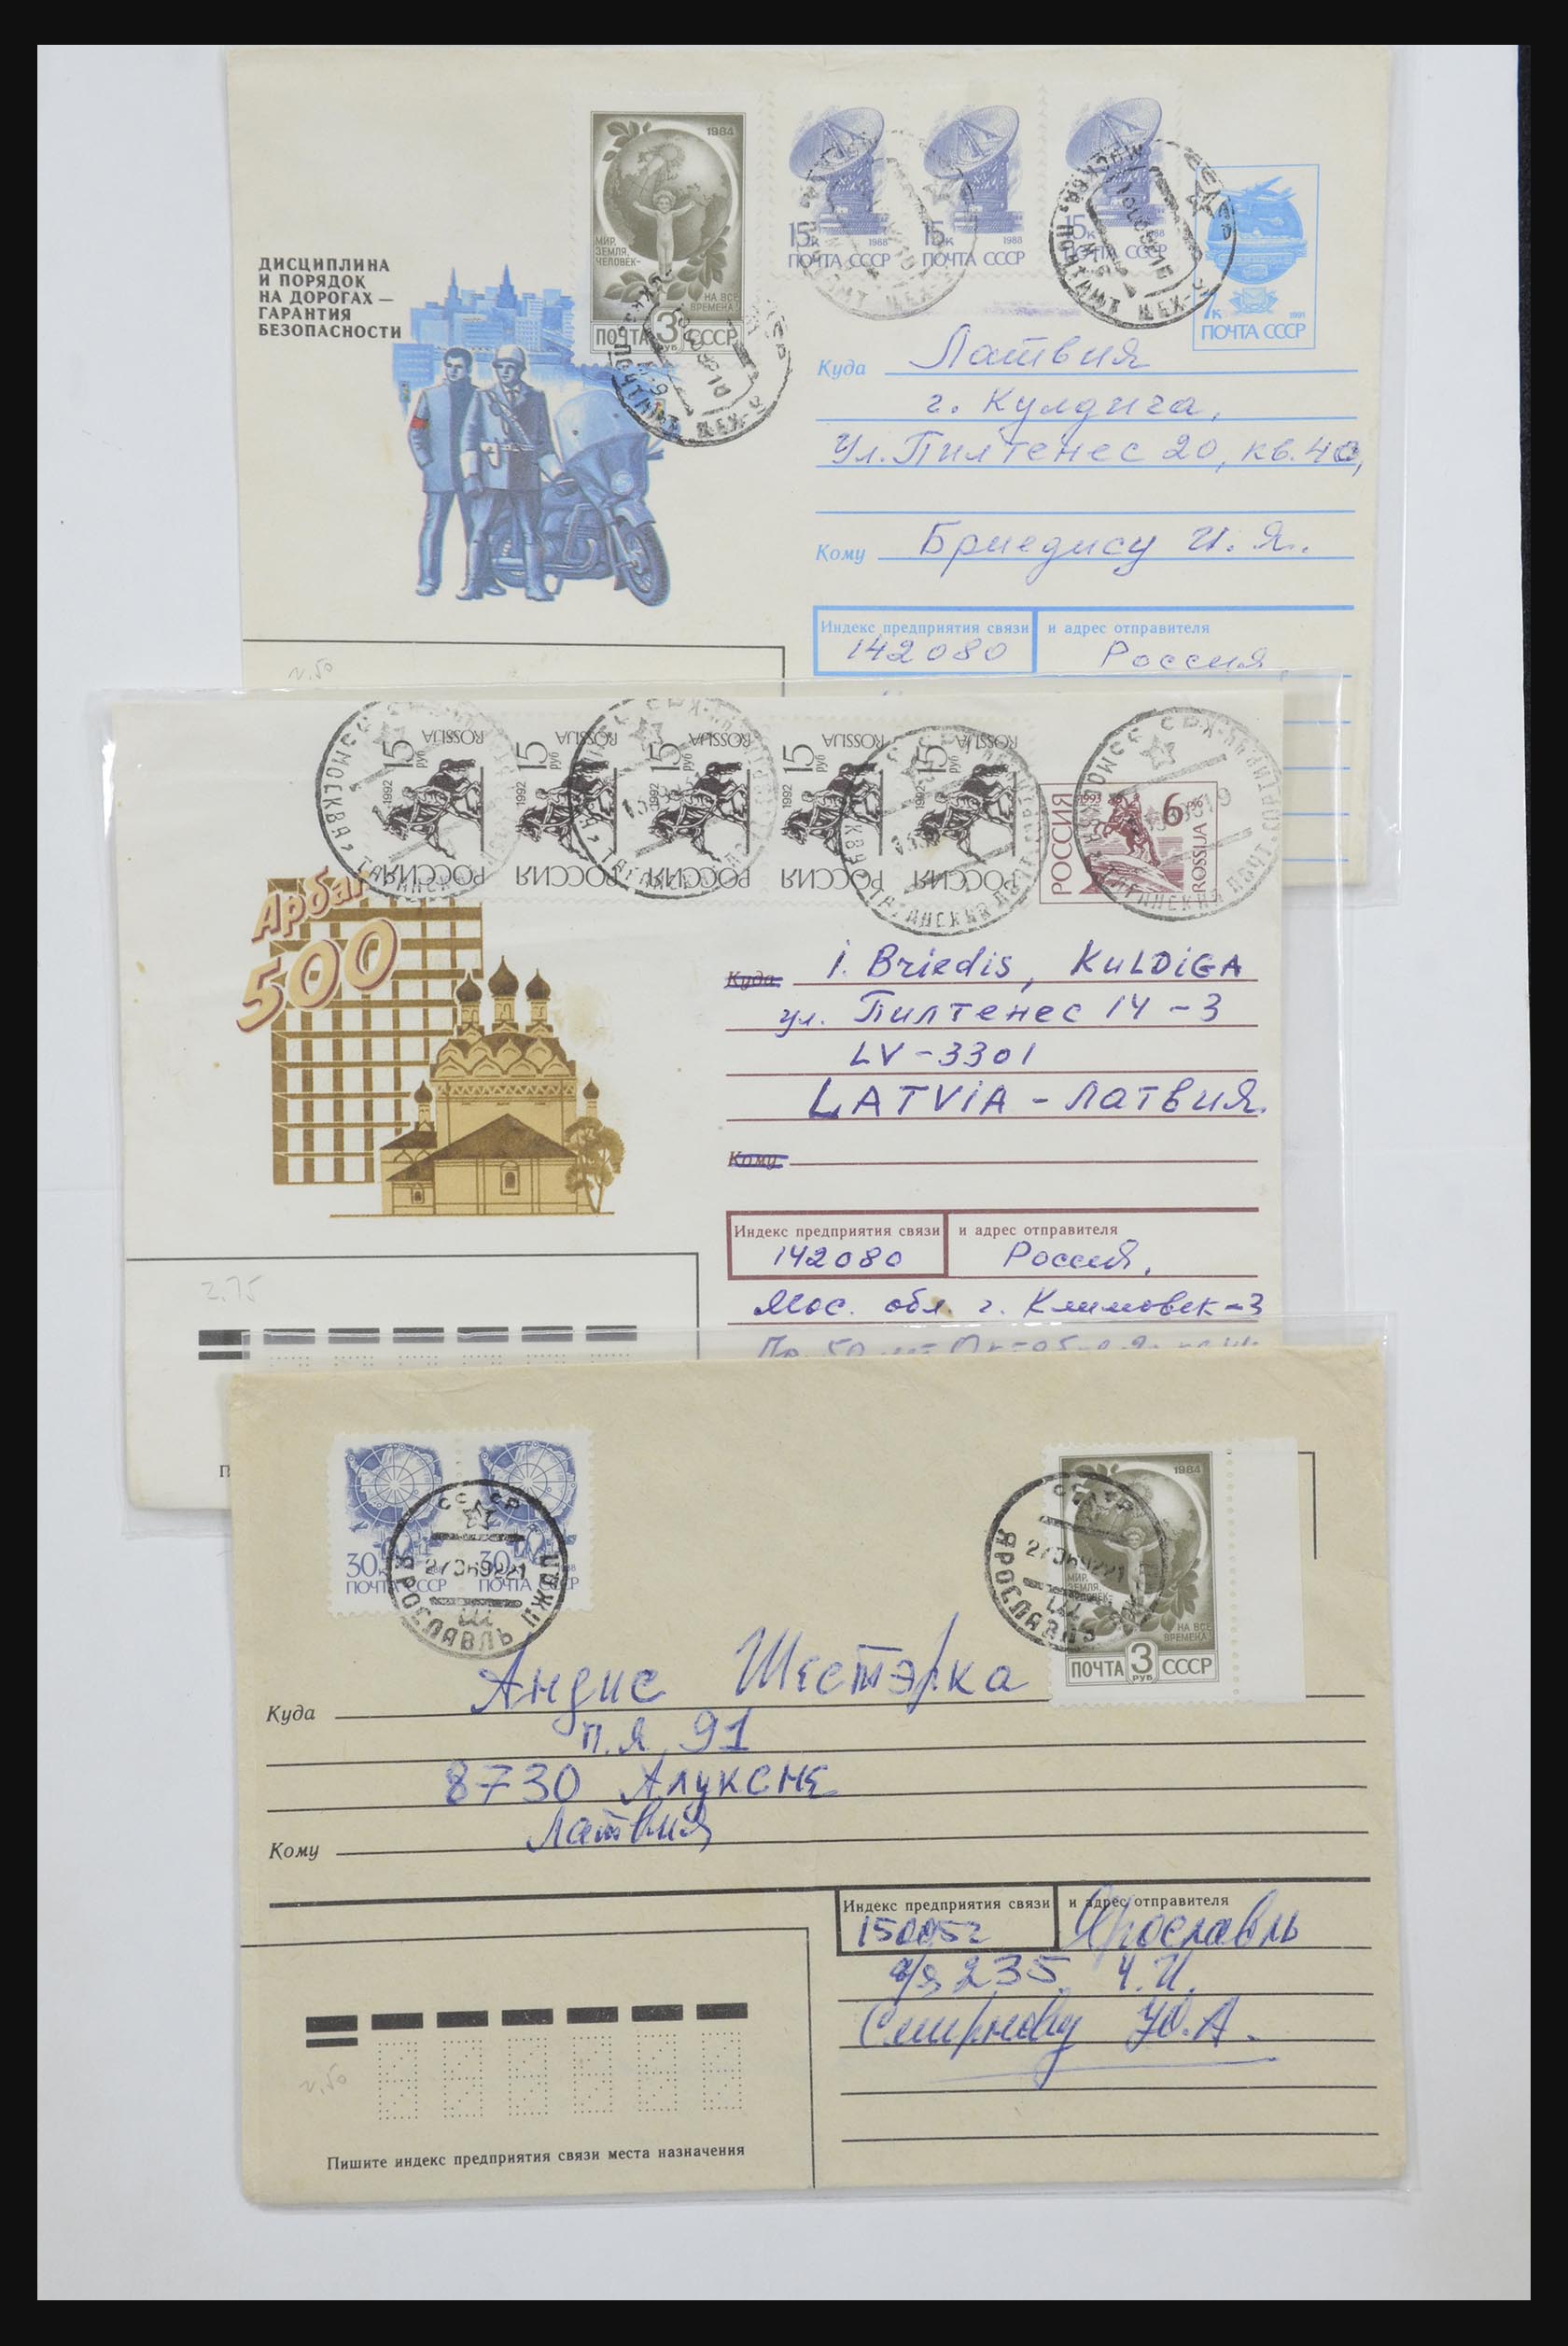 1984
МИР,
ЗЕМЛЯ,
ЧЕЛОВЕК-
НА ВСЕ
ВРЕМЕНА!
ПОЧТА 3 РУБ СССР
15к 1988
ПОЧТА СССР
15к 1988
ПОЧТА СССР
15к 1988
ПОЧТА СССР
7к 1991
ПОЧТА СССР
ДИСЦИПЛИНА
И ПОРЯДОК
НА ДОРОГАХ —
ГАРАНТИЯ
БЕЗОПАСНОСТИ
Куда Латвия
г. Кулдига,
Ул. Пилтенес 20, кв. 40,
Кому Бриедису И. Я.
Индекс предприятия связи и адрес отправителя
142080 Россия,
2.50
РОССИЯ 1992 15 руб ROSSIJA
РОССИЯ 1992 15 руб ROSSIJA
РОССИЯ 1992 15 руб ROSSIJA
РОССИЯ 1992 15 руб ROSSIJA
РОССИЯ 1992 15 руб ROSSIJA
РОССИЯ 6 ROSSIJA
МОСКВА, ТАГАНСКИЙ ПОЧТ
Арбат
500
Куда I. Briedis, KULDIGA
ул. Пилтенес 14-3
LV-3301
LATVIA - Латвия
Кому
Индекс предприятия связи и адрес отправителя
142080 Россия,
Мос. обл. г. Климовск-3
2.75
30к
ПОЧТА СССР
30к 1988
ПОЧТА СССР
СССР
ЯРОСЛАВЛЬ
27069221
1984
МИР,
ЗЕМЛЯ,
ЧЕЛОВЕК-
НА ВСЕ
ВРЕМЕНА!
ПОЧТА 3 РУБ СССР
СССР
ЯРОСЛАВЛЬ
27069221
Куда Андис Шестэрка
п.я. 91
8730 Алуксне
Кому Латвия
Индекс предприятия связи и адрес отправителя
150052 Ярославль
а/я 235 Ч.И.
Смирнову Ю.А.
2.50
Пишите индекс предприятия связи места назначения